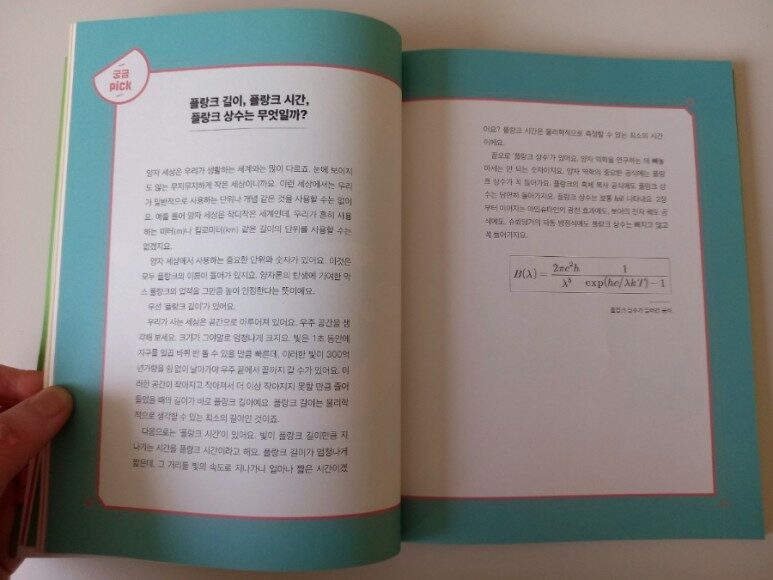 궁금
PICK
플랑크 길이, 플랑크 시간,
플랑크 상수는 무엇일까?
양자 세상은 우리가 생활하는 세계와는 많이 다르죠. 눈에 보이지
도 않는 무지무지하게 작은 세상이니까요. 이런 세상에서는 우리
가 일반적으로 사용하는 단위나 개념 같은 것을 사용할 수는 없어
요. 예를 들어 양자 세상은 작디작은 세계인데, 우리가 흔히 사용
하는 미터(m)나 킬로미터(km) 같은 길이의 단위를 사용할 수는
없겠지요.
양자 세상에서 사용하는 중요한 단위와 숫자가 있어요. 이것은
모두 플랑크의 이름이 들어가 있지요. 양자론의 탄생에 기여한 막
스 플랑크의 업적을 그만큼 높이 인정한다는 뜻이에요.
우선 '플랑크 길이'가 있어요.
우리가 사는 세상은 공간으로 이루어져 있어요. 우주 공간을 생
각해 보세요. 크기가 그야말로 엄청나게 크지요. 빛은 1초 동안에
지구를 일곱 바퀴 반 돌 수 있을 만큼 빠른데, 이러한 빛이 300억
년가량을 쉼 없이 날아가야 우주 끝에서 끝까지 갈 수가 있어요. 이
러한 공간이 작아지고 작아져서 더 이상 작아지지 못할 만큼 줄어
들었을 때의 길이가 바로 플랑크 길이예요. 플랑크 길이는 물리학
적으로 생각할 수 있는 최소의 길이인 것이죠.
다음으로는 '플랑크 시간'이 있어요. 빛이 플랑크 길이만큼 지
나가는 시간을 플랑크 시간이라고 해요. 플랑크 길이가 엄청나게
짧은데, 그 거리를 빛의 속도로 지나가니 얼마나 짧은 시간이겠
어요? 플랑크 시간은 물리학적으로 측정할 수 있는 최소의 시간
이에요.
끝으로 '플랑크 상수'가 있어요. 양자 역학을 연구하는 데 빼놓
아서는 안 되는 숫자이지요. 양자 역학의 중요한 공식에는 플랑
크 상수가 꼭 들어가요. 플랑크의 흑체 복사 공식에도 플랑크 상
수는 당연히 들어가지요. 플랑크 상수는 보통 h로 나타내요. 2장
부터 이어지는 아인슈타인의 광전 효과에도, 보어의 전자 궤도 공
식에도, 슈뢰딩거의 파동 방정식에도 플랑크 상수는 빠지지 않고
꼭 들어가지요.
B(λ) = 2πc²h / λ⁵ 1 / exp(hc/λkT) − 1
플랑크 상수가 들어간 공식